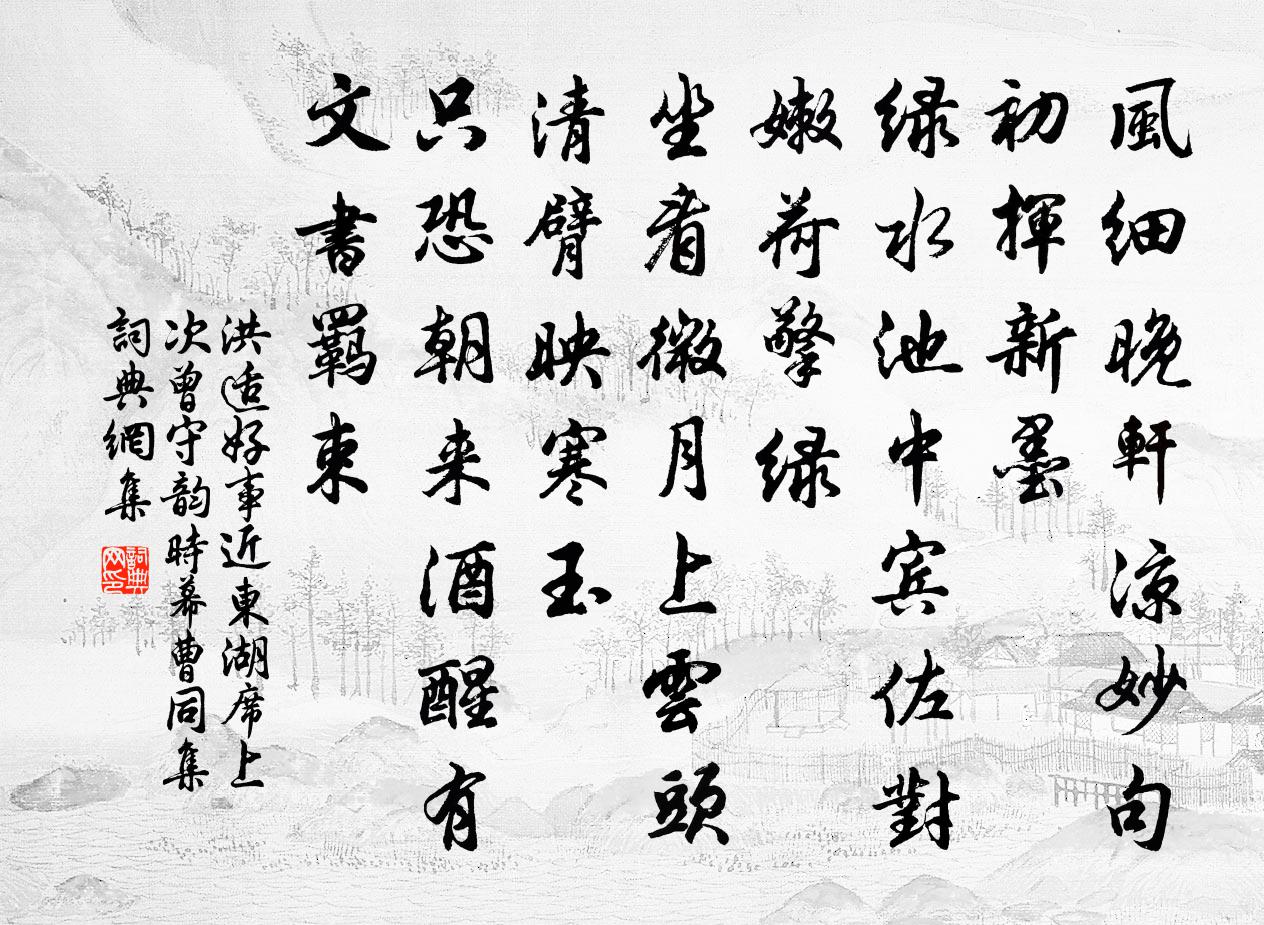 風細晚軒凉妙句
初揮新墨
緑水池中宾佐對
嫩荷擎緑
坐看微月上雲頭
清臂映寒玉
只恐朝来酒醒有
文書羁束
洪适好事近東湖席上
次曾守韵時幕曹同集
詞典網集
詞典网印